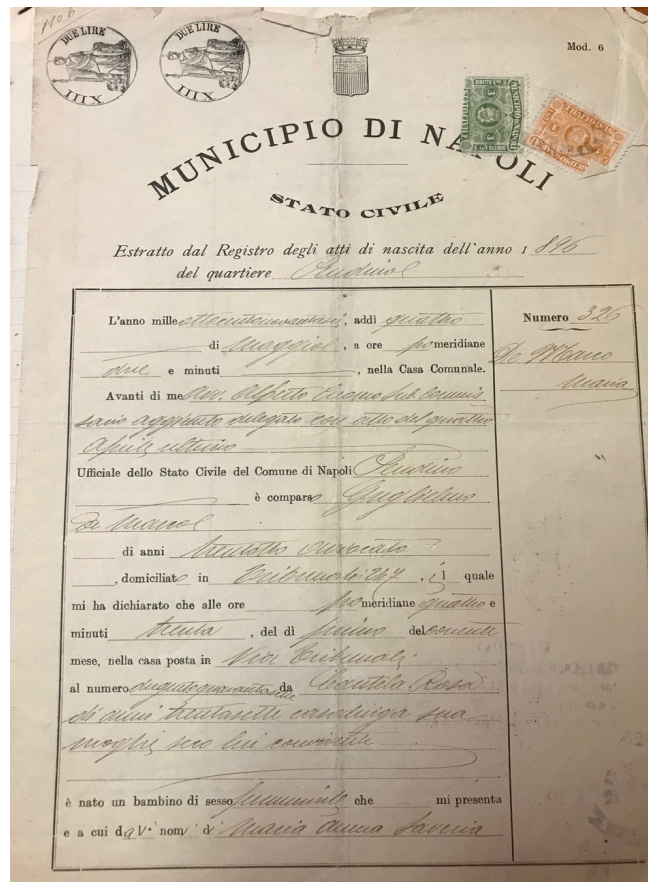 1106
DUE LIRE
XIII
DUE LIRE
XIII
Mod. 6
MUNICIPIO DI NAPOLI
STATO CIVILE
Estratto dal Registro degli atti di nascita dell'anno 1 896
del quartiere Pendino
Numero 326
De Marco
Maria
L'anno mille ottocentonovantasei, addì quattro
di Maggio, a ore pomeridiane
due e minuti , nella Casa Comunale.
Avanti di me Avv. Alfredo Cuomo Sub. Commis
sario aggiunto delegato con atto del quattro
Aprile ultimo
Ufficiale dello Stato Civile del Comune di Napoli Pendino
è comparso Guglielmo
de Marco
di anni trentotto avvocato
, domiciliato in Tribunali 247, il quale
mi ha dichiarato che alle ore pomeridiane quattro e
minuti trenta, del dì primo del corrente
mese, nella casa posta in Via Tribunali
al numero duegentoquarantasette da Cautela Rosa
di anni trentasette casalinga sua
moglie seco lui convivente
è nato un bambino di sesso femminile che mi presenta
e a cui dà i nomi di Maria Anna Saveria